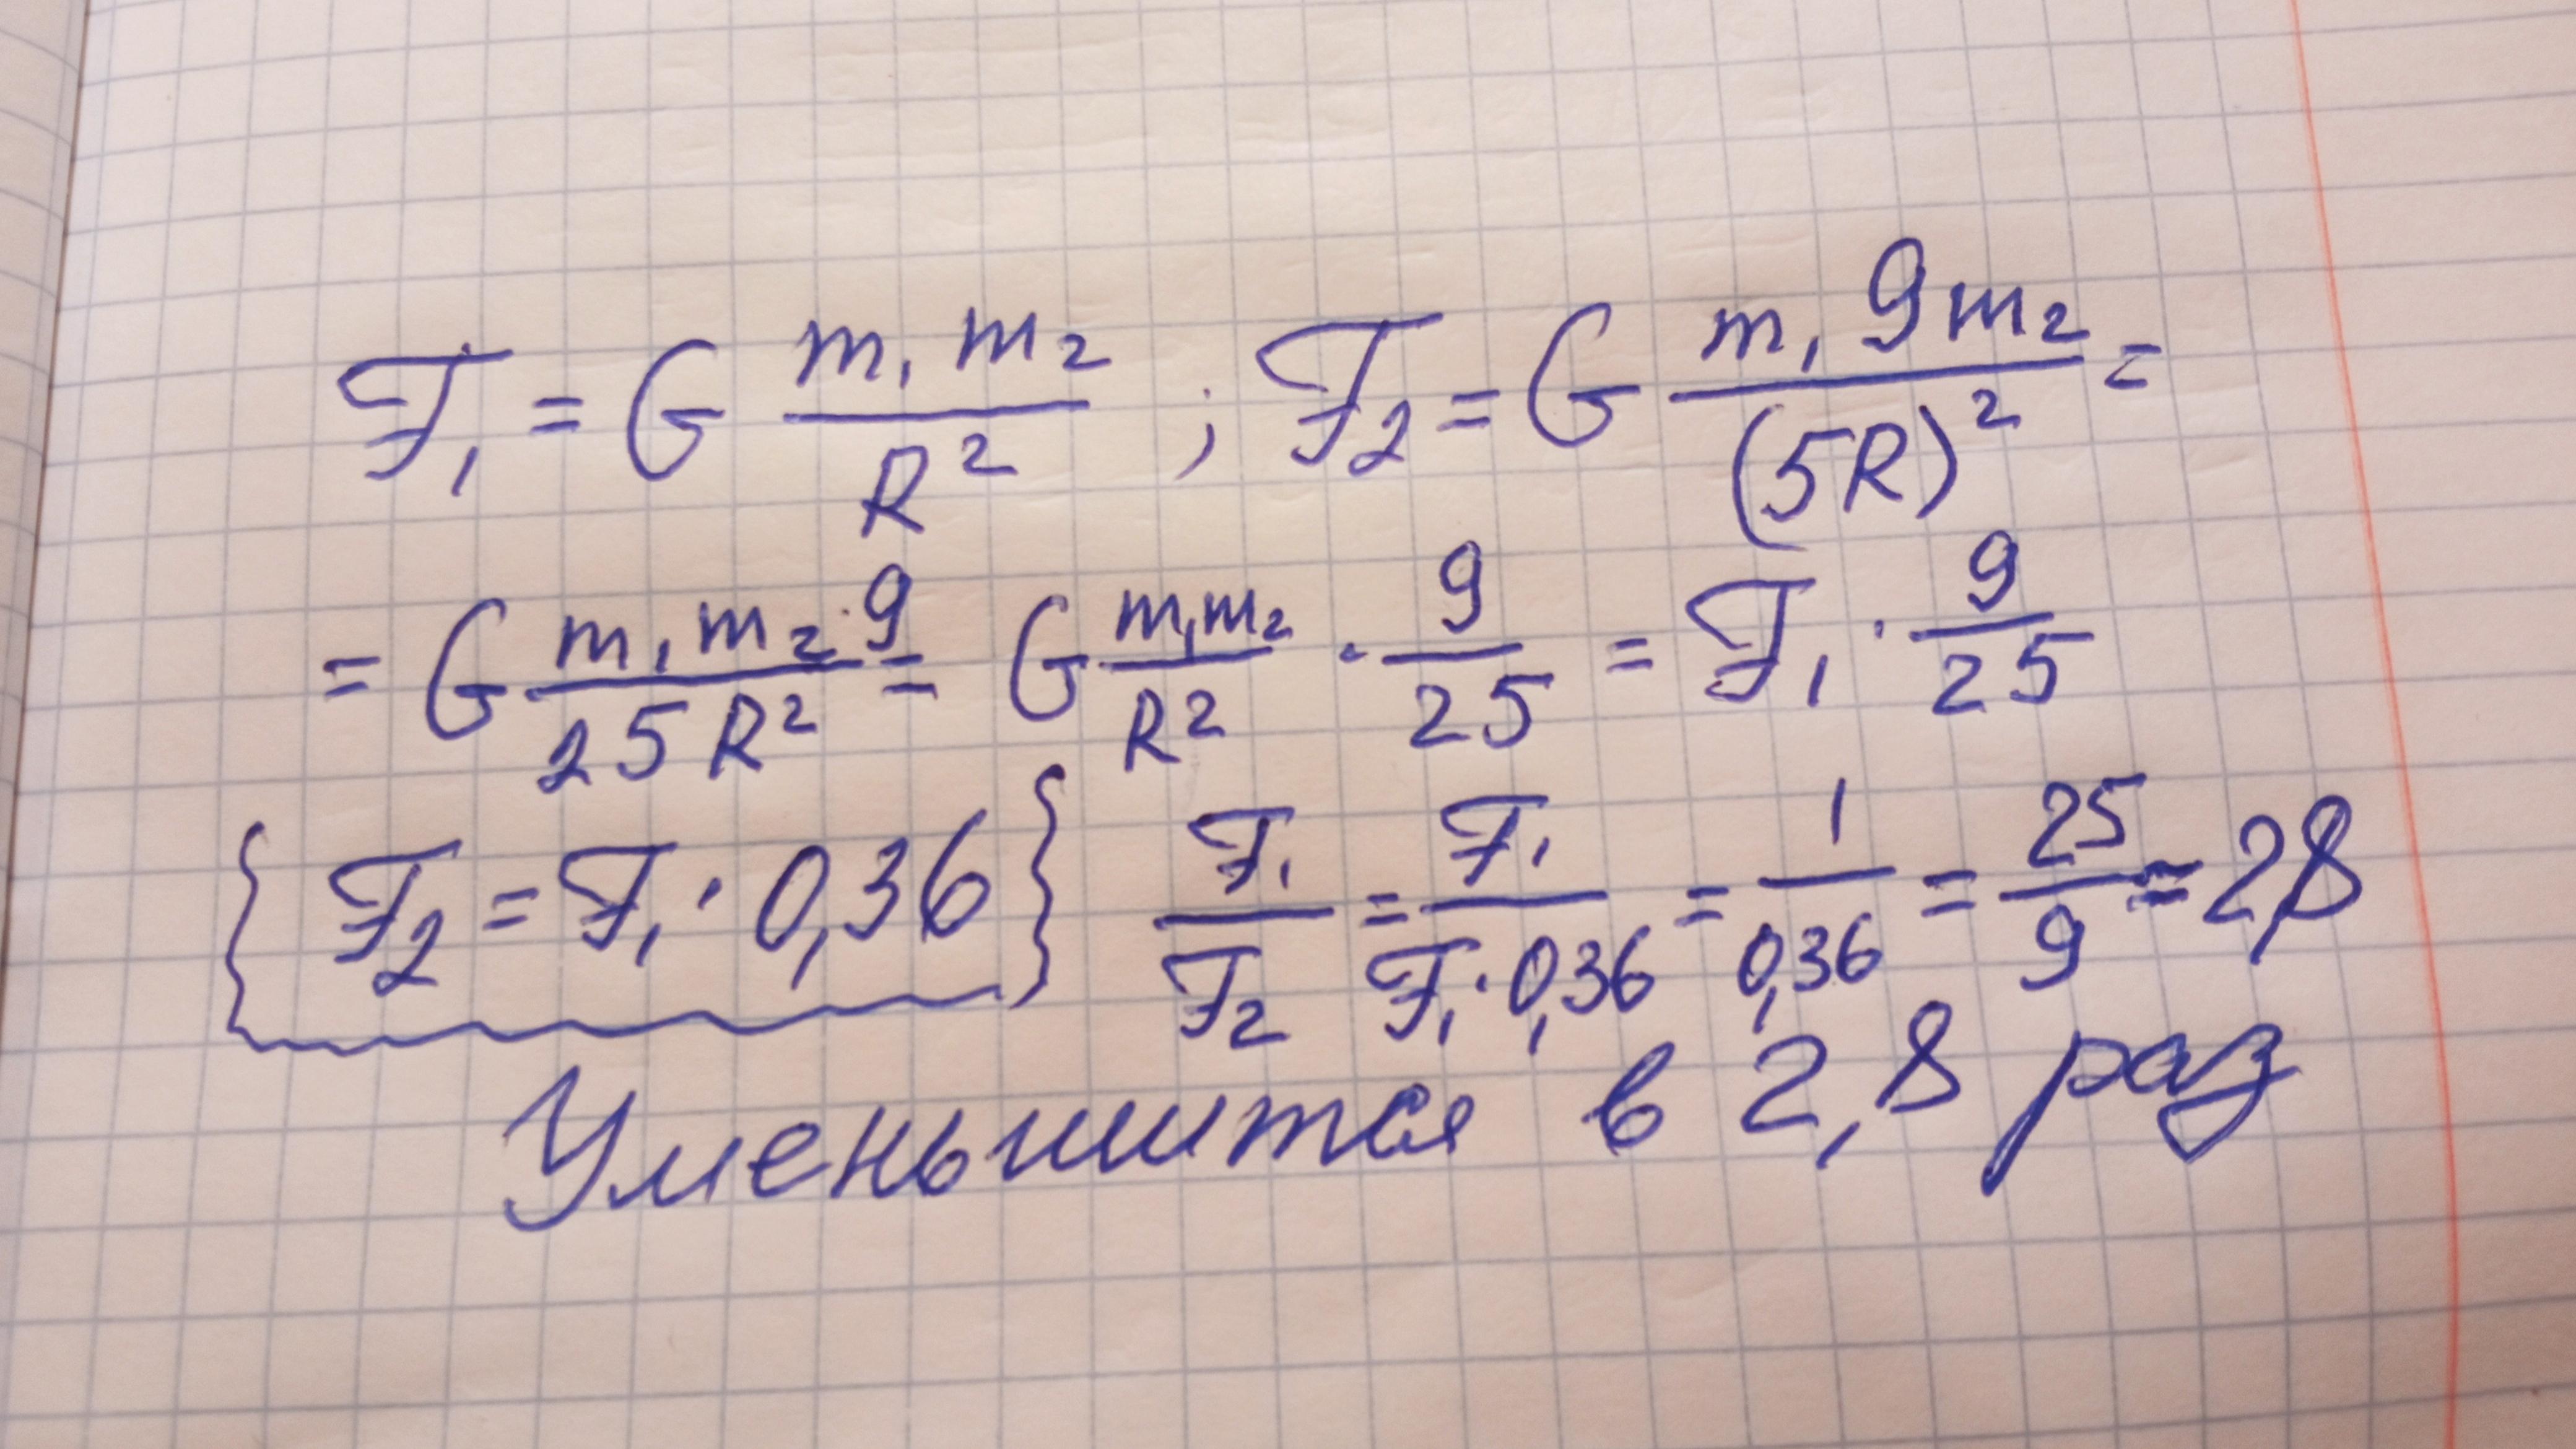 F₁ = G m₁ m₂ / R² ; F₂ = G m₁ 9m₂ / (5R)² =
= G m₁ m₂ · 9 / 25 R² = G m₁m₂ / R² · 9/25 = F₁ · 9/25
{ F₂ = F₁ · 0,36 } F₁ / F₂ = F₁ / F₁ · 0,36 = 1 / 0,36 = 25 / 9 = 2,8
Уменьшится в 2,8 раз